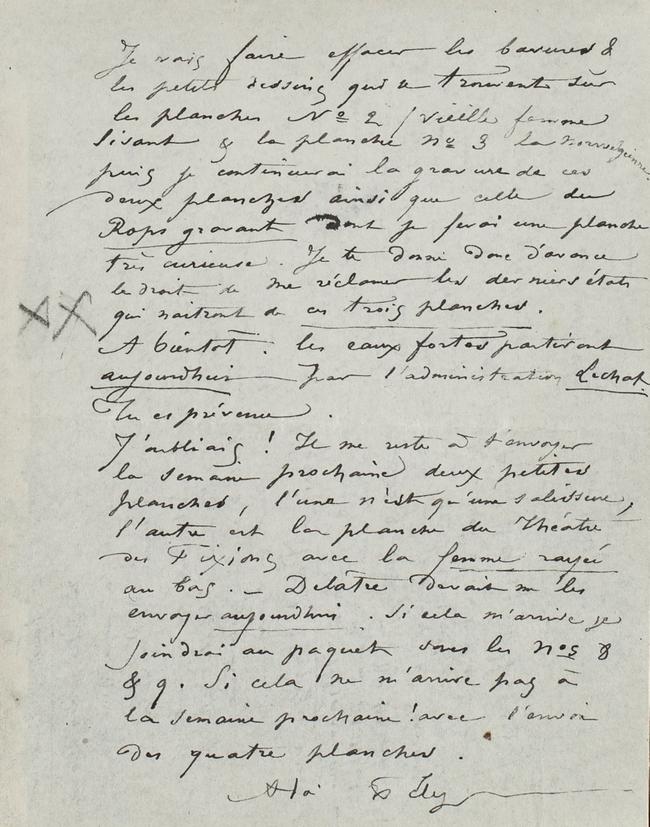 Je vais faire effacer les bavures &
les petits dessins qui se trouvent sur
les planches Nº 2 (vieille femme
lisant & la planche nº 3 la norwégienne,
puis je continuerai la gravure de ces
deux planches ainsi que celle du
Rops gravant dont je ferai une planche
très curieuse. Je te donne donc d'avance
le droit de me réclamer les derniers états
qui naitront de ces trois planches.
A bientôt : les eaux fortes partiront
aujourdhui par l'administration Lechat.
Tu es prévenu.
J'oubliais ! Il me reste à t'envoyer
la semaine prochaine deux petites
planches, l'une n'est qu'une salissure,
l'autre est la planche du Théatre
des avec la femme rayée
au bas. _ Delatre devait me les
envoyer aujourdhui. Si cela m'arrive je
joindrai au paquet sous les nos 8
& 9. Si cela ne m'arrive pas à
la semaine prochaine ! avec l'envoi
des quatre planches.
A toi Fély